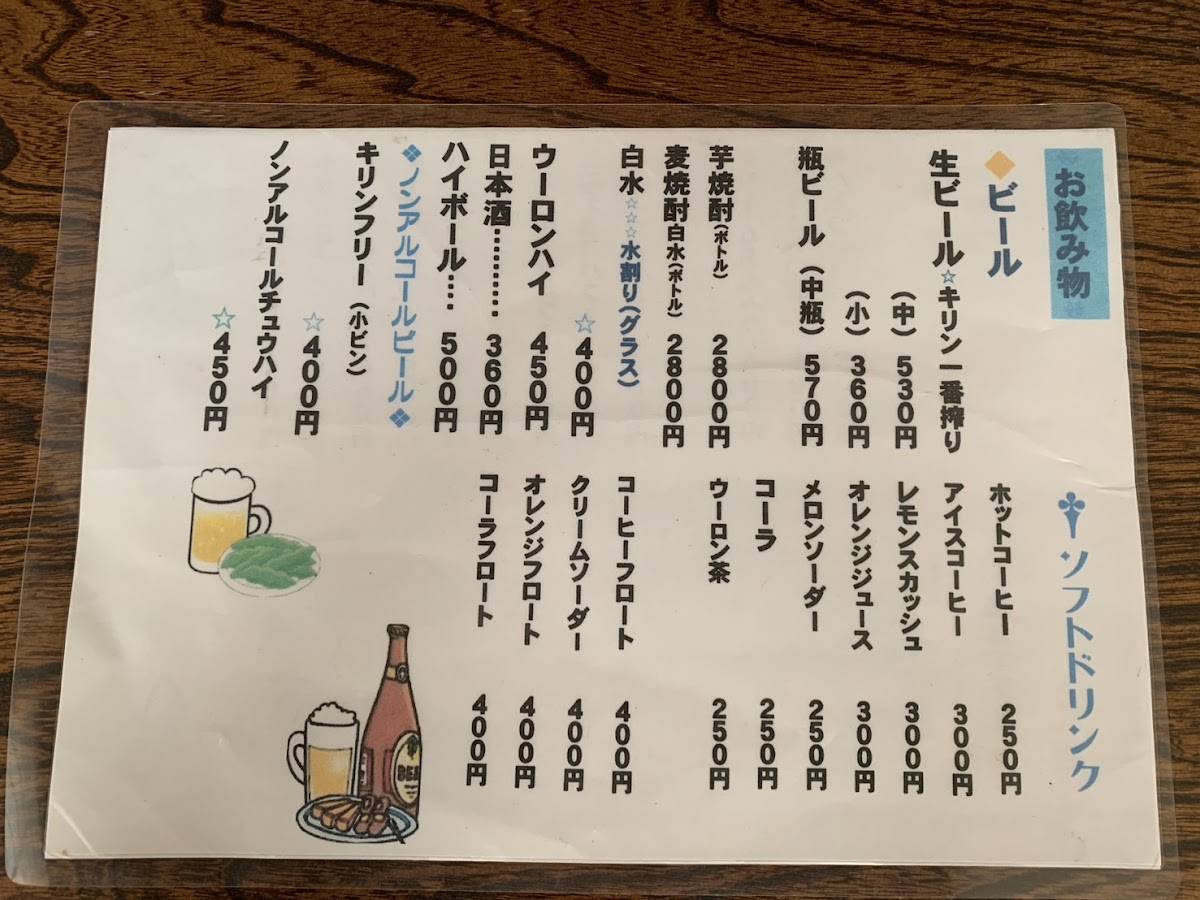 お飲み物
◆ビール
生ビール☆キリン一番搾り
(中) 530円
(小) 360円
瓶ビール (中瓶) 570円
芋焼酎(ボトル) 2800円
麦焼酎白水(ボトル) 2800円
白水☆☆☆水割り(グラス)
☆400円
ウーロンハイ 450円
日本酒………… 360円
ハイボール…. 500円
❖ノンアルコールビール❖
キリンフリー (小ビン)
☆400円
ノンアルコールチュウハイ
☆450円
ソフトドリンク
ホットコーヒー 250円
アイスコーヒー 300円
レモンスカッシュ 300円
オレンジジュース 300円
メロンソーダー 250円
コーラ 250円
ウーロン茶 250円
コーヒーフロート 400円
クリームソーダー 400円
オレンジフロート 400円
コーラフロート 400円